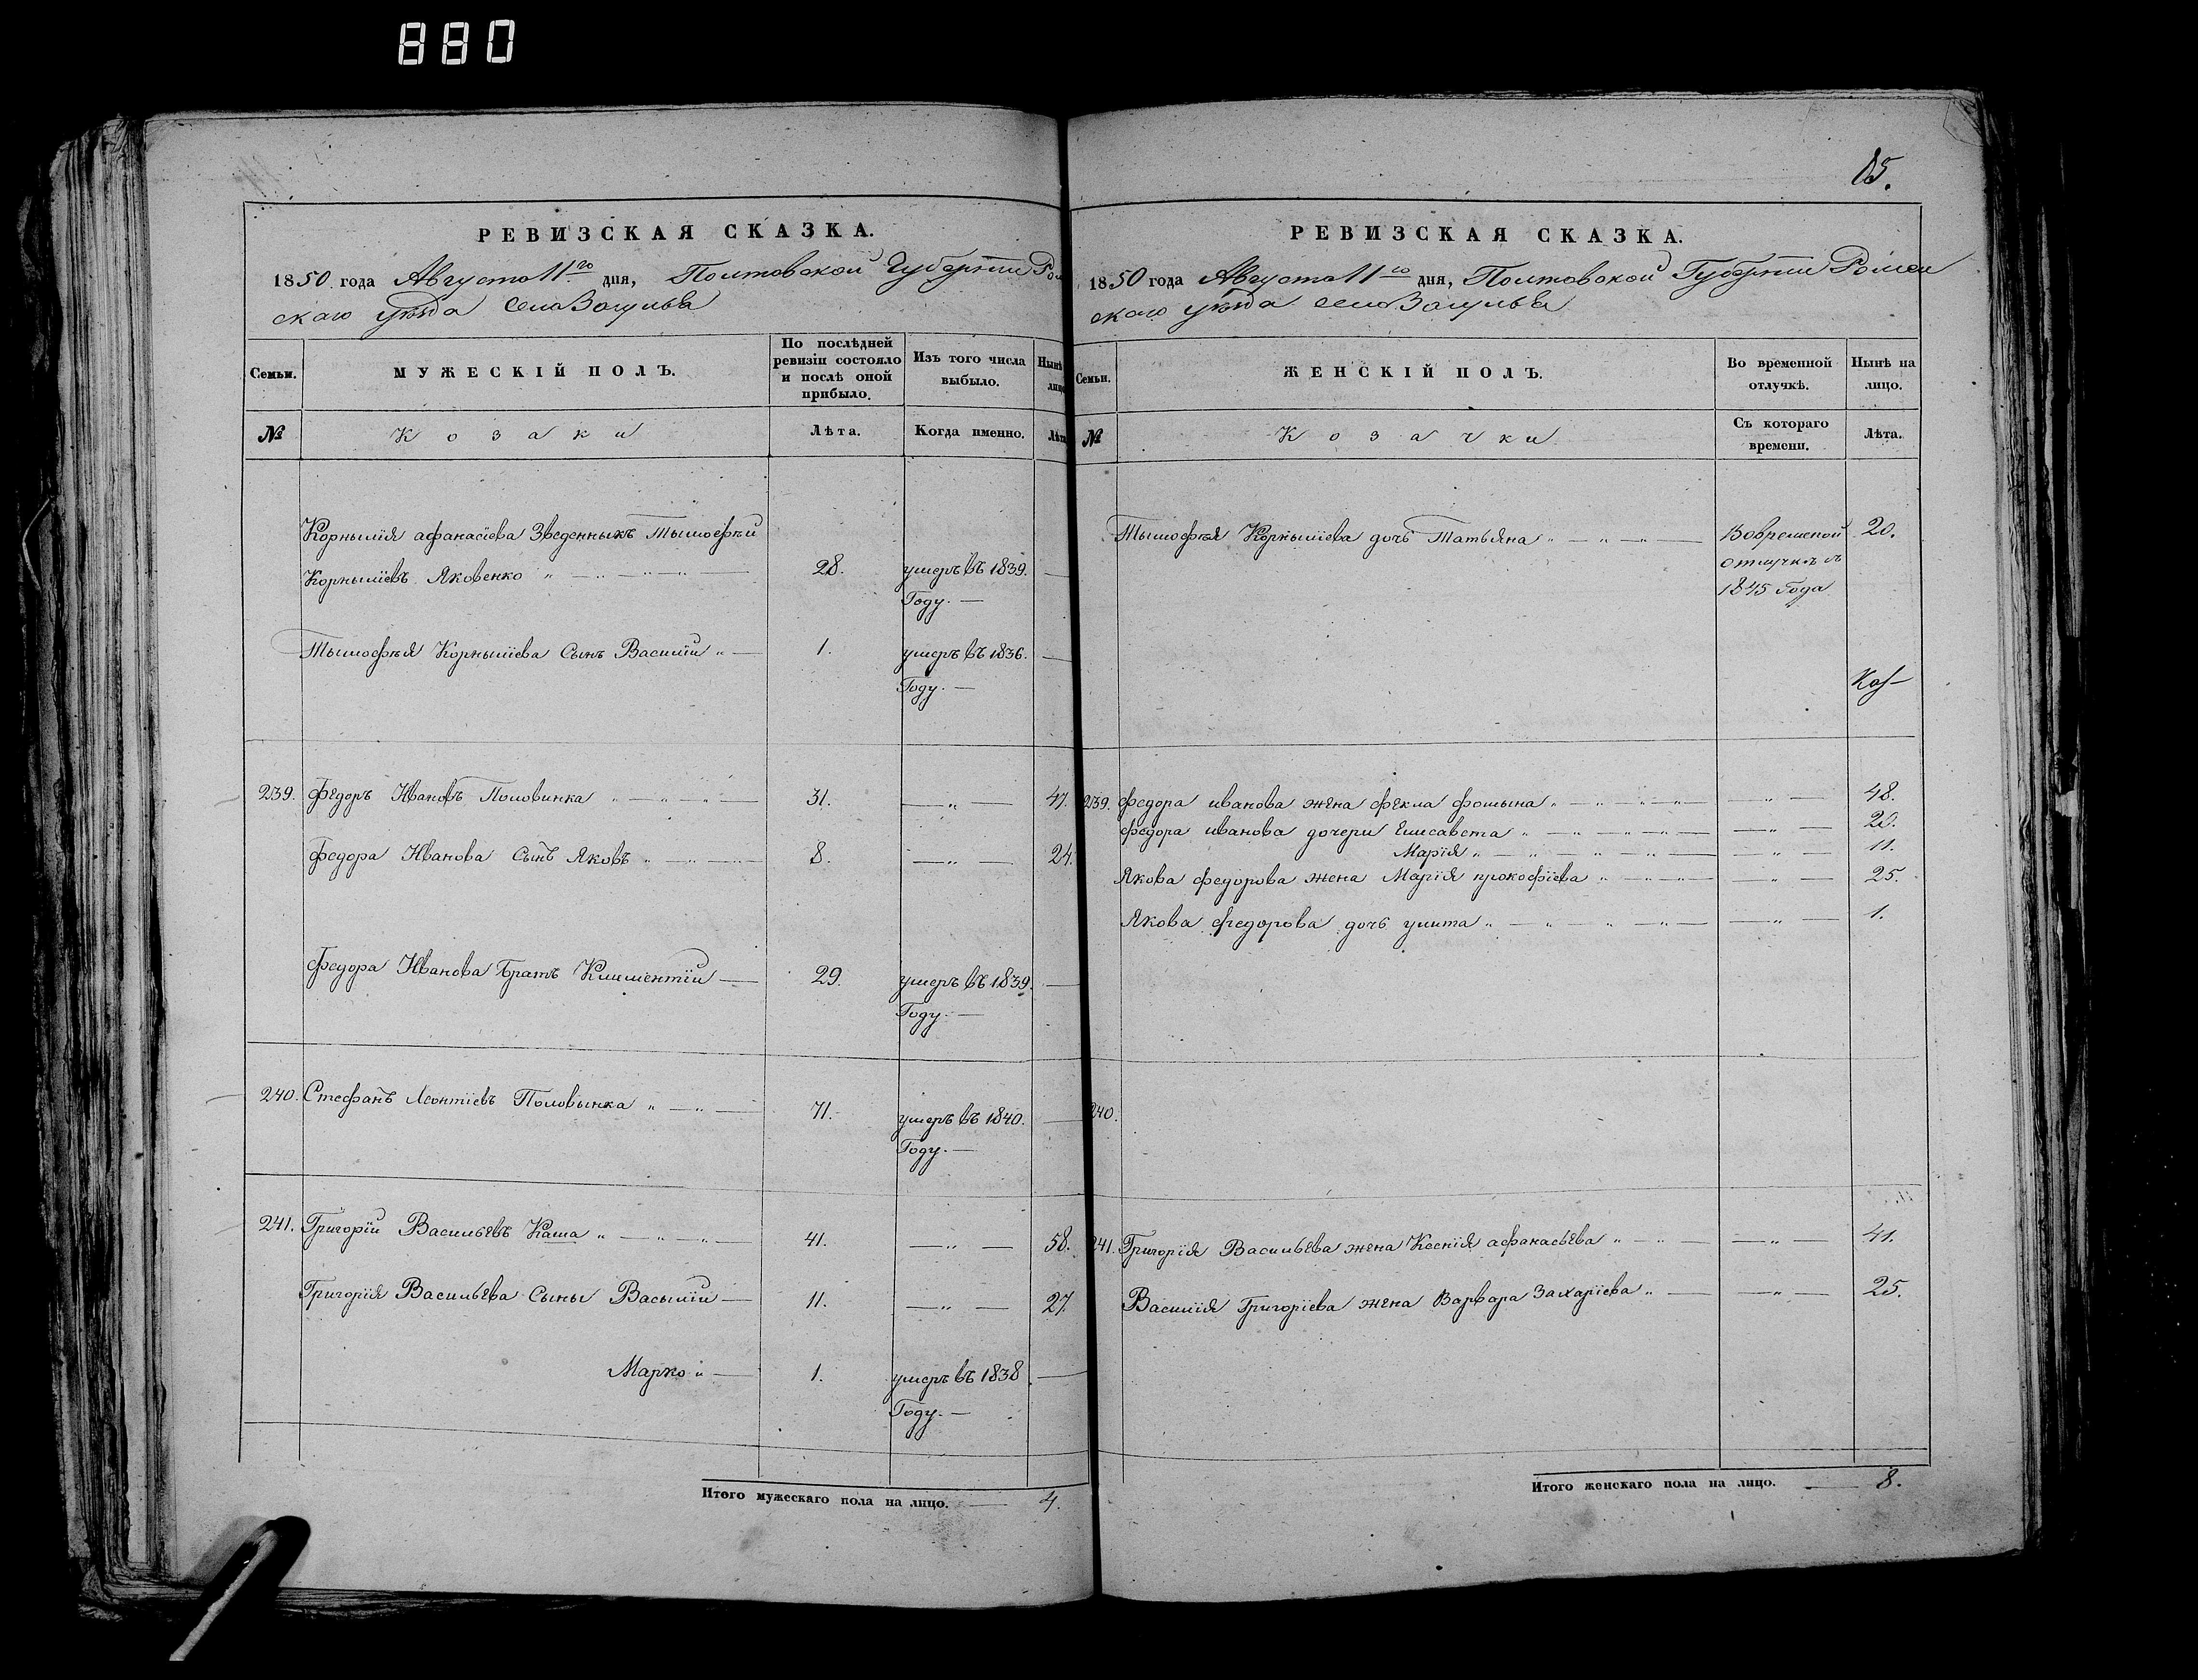 880
РЕВИЗСКАЯ СКАЗКА.
1850 года Августа 11го дня, Полтавской Губернии Ро
скаго уѣзда села Засулья
Семьи.
МУЖЕСКІЙ ПОЛЪ.
По послѣдней ревизіи состояло и послѣ оной прибыло.
Изъ того числа выбыло.
Нынѣ лицо
№
Козаки
Лѣта.
Когда именно.
Лѣта
Корнылія афанасіева Зведенныкъ Тымофѣй
Корныліевъ Яковенко 28. умеръ въ 1839.
Году.
Тымофѣя Корныліева Сынъ Василій 1. умеръ въ 1836.
Году.
239. Федоръ Ивановъ Половинка 31. 47.
Федора Иванова Сынъ Яковъ 8. 24.
Федора Иванова Братъ Климентій 29. умеръ въ 1839.
Году.
240. Стефанъ Леонтіевъ Половынка 71. умеръ въ 1840.
Году.
241. Григорій Васильевъ Каша 41. 58.
Григорія Васильева Сыны Василій 11. 27.
Марко 1. умеръ въ 1838.
Году.
Итого мужескаго пола на лицо. 4.
85.
РЕВИЗСКАЯ СКАЗКА.
1850 года Августа 11го дня, Полтавской Губернии Ромен
скаго уѣзда села Засулья
Семьи.
ЖЕНСКІЙ ПОЛЪ.
Во временной отлучкѣ.
Нынѣ на лицо.
№
Козачки
Съ котораго времени.
Лѣта.
Тымофѣя Корныліева дочь Татьяна Вовременой 20.
отлучкѣ съ
1845 Года
239. Федора иванова жена фекла фомына 48.
федора иванова дочери Елисавета 20.
Марія 11.
Якова федорова жена Марія прокофіева 25.
Якова федорова дочь улита 1.
240.
241. Григорія Васильева жена Ксенія афанасьева 41.
Василія Григоріева жена Варвара Захаріева 25.
Итого женскаго пола на лицо. 8.